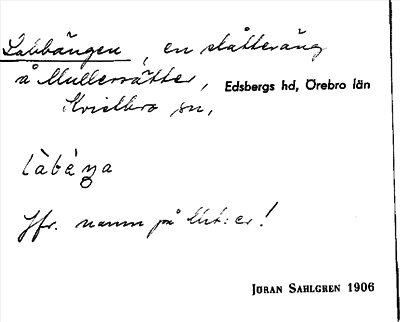 Labbängen, en slåtteräng
å Mullersätter, Edsbergs hd, Örebro län
Kvistbro sn,
làbèŋa
Jfr. namn på Mt:er!
JÖRAN SAHLGREN 1906